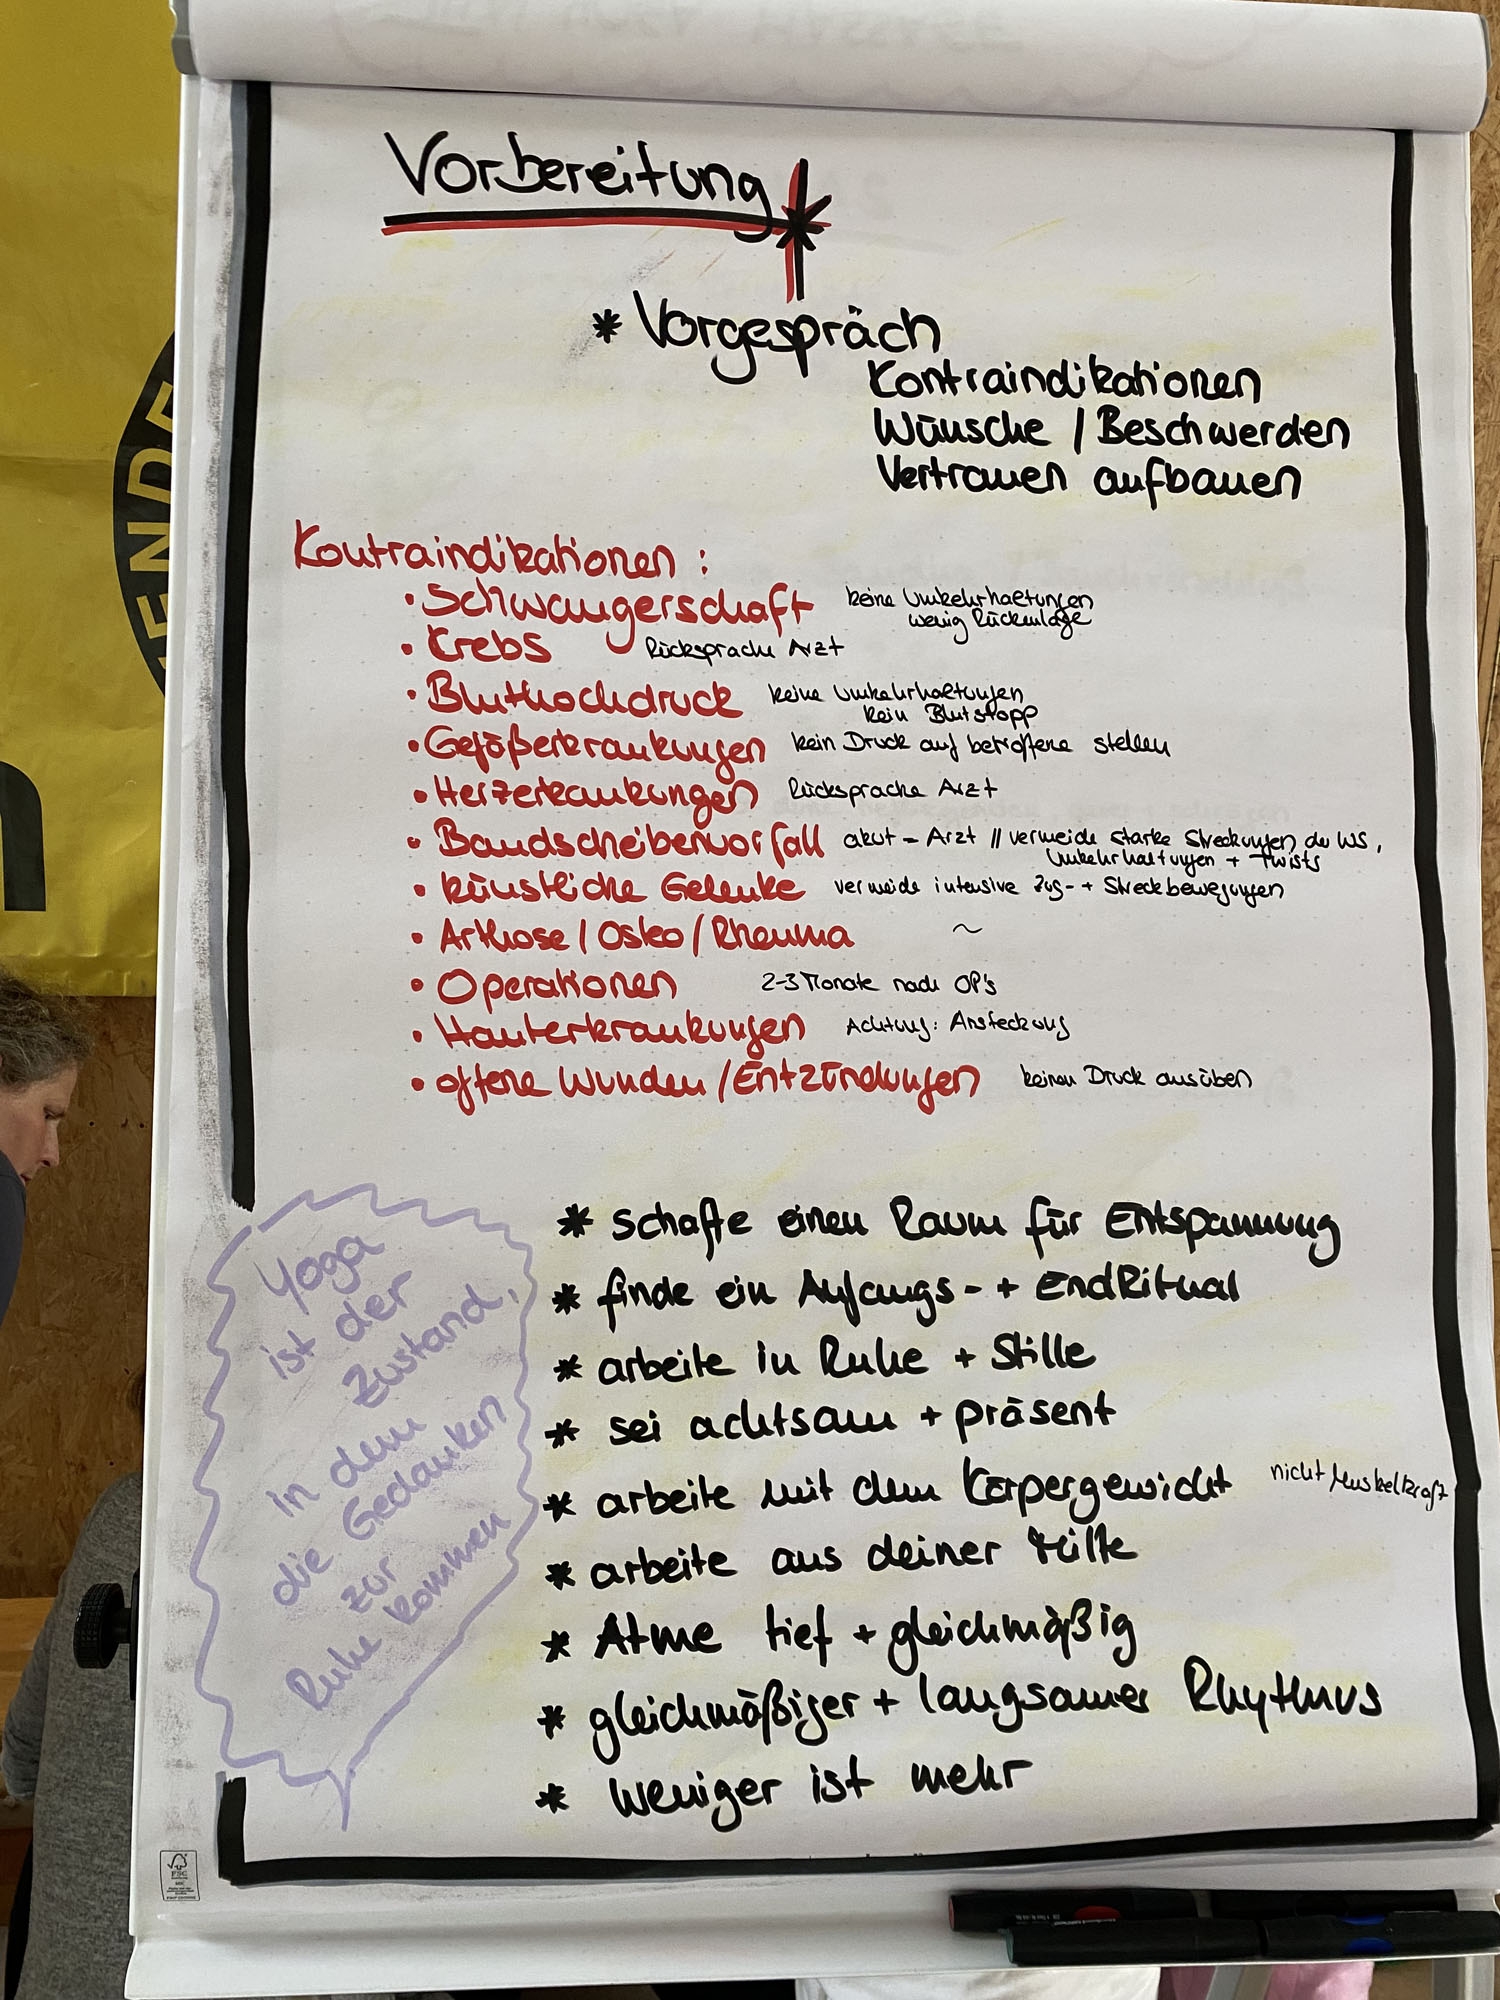 Vorbereitung
* Vorgespräch
Kontraindikationen
Wünsche / Beschwerden
Vertrauen aufbauen
Kontraindikationen :
• Schwangerschaft keine Umkehrhaltungen
wenig Rückenlage
• Krebs Rücksprache Arzt
• Bluthochdruck keine Umkehrhaltungen
kein Blutstopp
• Gefäßerkrankungen kein Druck auf betroffene stellen
• Herzerkankungen Rücksprache Arzt
• Bandscheibenvorfall akut - Arzt // vermeide starke Streckungen der WS,
Umkehrhaltungen + Twists
• künstliche Gelenke vermeide intensive Zug- + Streckbewegungen
• Arthose / Osteo / Rheuma ~
• Operationen 2-3 Monate nach OP's
• Hauterkrankungen Achtung: Ansteckung
• offene Wunden / Entzündungen keinen Druck ausüben
* schaffe einen Raum für Entspannung
* finde ein Anfangs- + EndRitual
* arbeite in Ruhe + Stille
* sei achtsam + präsent
* arbeite mit dem Körpergewicht nicht Muskelkraft
* arbeite aus deiner Mitte
* Atme tief + gleichmäßig
* gleichmäßiger + langsamer Rhythmus
* weniger ist mehr
Yoga
ist der
Zustand,
in dem
die Gedanken
zur
Ruhe kommen
ENDE
n
FSC